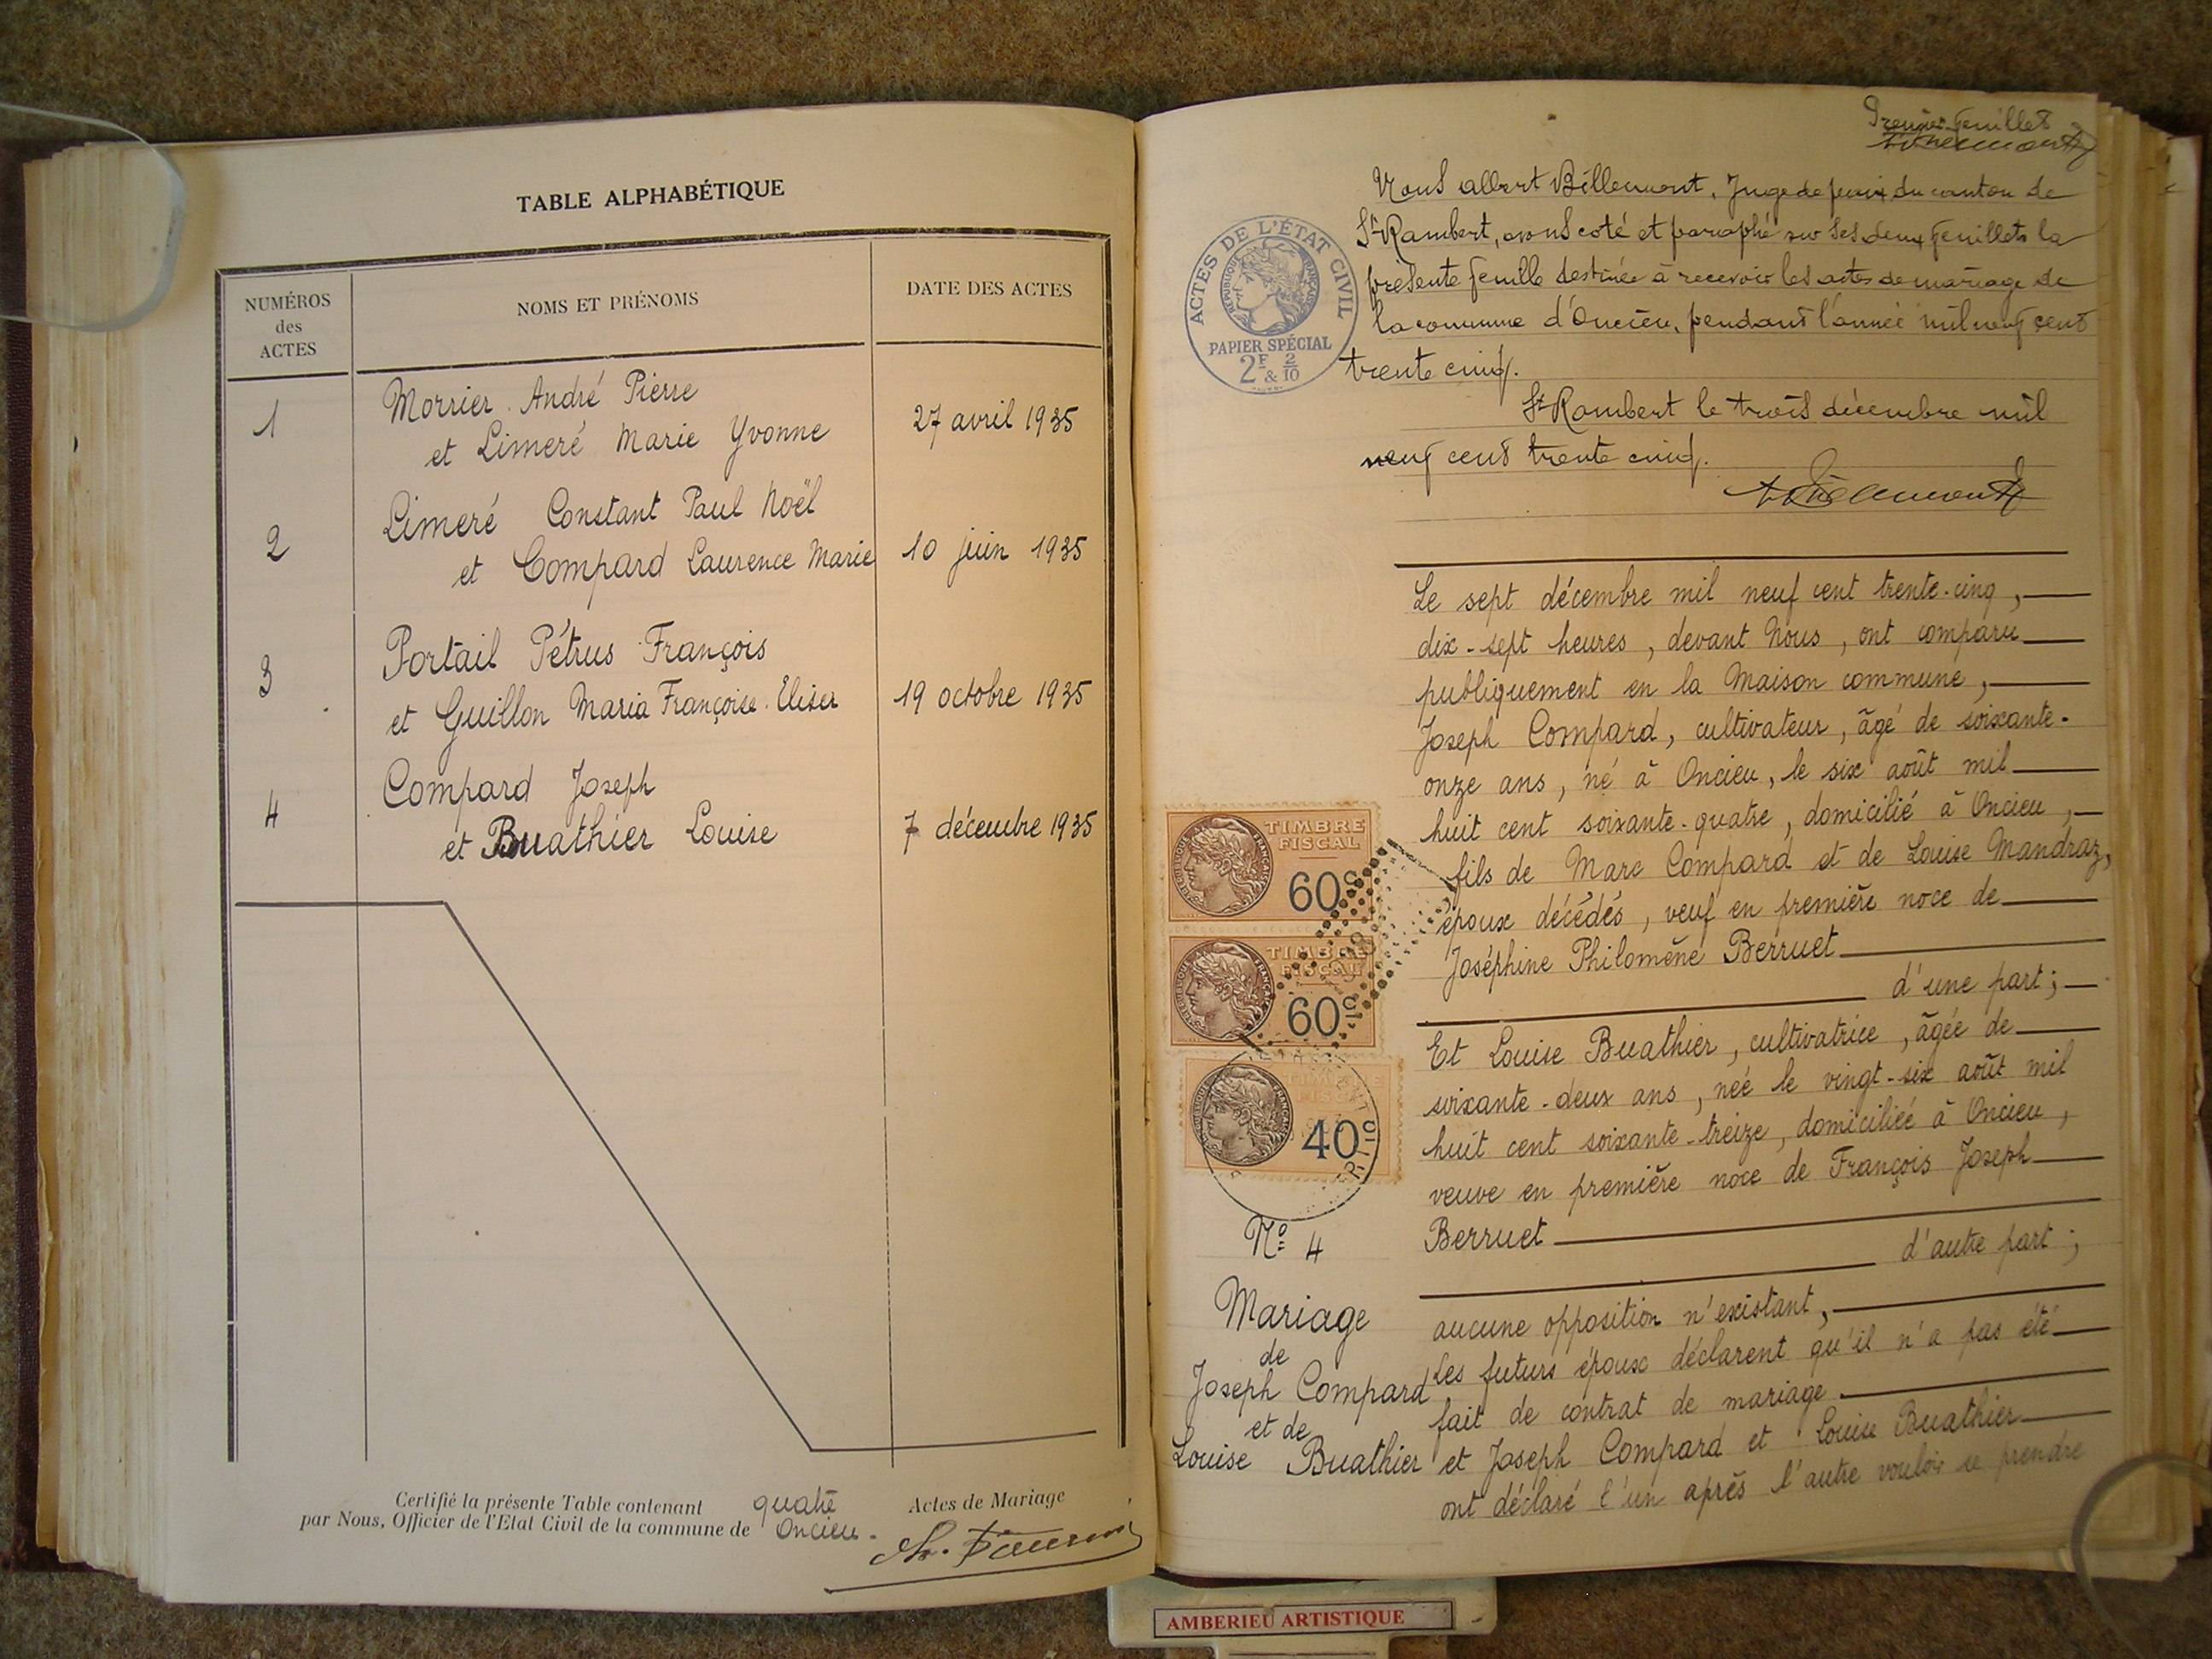 TABLE ALPHABÉTIQUE
NUMÉROS
des
ACTES
NOMS ET PRÉNOMS
DATE DES ACTES
1
Morrier André Pierre
et Limeré Marie Yvonne
27 avril 1935
2
Limeré Constant Paul Noël
et Compard Laurence Marie
10 juin 1935
3
Portail Pétrus François
et Guillon Maria Françoise Elisa
19 octobre 1935
4
Compard Joseph
et Buathier Louise
7 décembre 1935
Certifié la présente Table contenant quatre Actes de Mariage
par Nous, Officier de l'Etat Civil de la commune de Oncieu.
Premier feuillet
Nous Albert Billemont, Juge de paix du canton de
St Rambert, avons coté et paraphé sur ses deux feuillets la
présente feuille destinée à recevoir les actes de mariage de
la commune d'Oncieu, pendant l'année mil neuf cent
trente cinq.
St Rambert le trois décembre mil
neuf cent trente cinq.
ACTES DE L'ÉTAT CIVIL
RÉPUBLIQUE FRANÇAISE
PAPIER SPÉCIAL
2F & 2/10
Le sept décembre mil neuf cent trente-cinq,
dix-sept heures, devant Nous, ont comparu
publiquement en la Maison commune,
Joseph Compard, cultivateur, âgé de soixante-
onze ans, né à Oncieu, le six août mil
huit cent soixante-quatre, domicilié à Oncieu,
fils de Marc Compard et de Louise Mandraz,
époux décédés, veuf en première noce de
Joséphine Philomène Berruet
d'une part;
Et Louise Buathier, cultivatrice, âgée de
soixante-deux ans, née le vingt-six août mil
huit cent soixante-treize, domiciliée à Oncieu,
veuve en première noce de François Joseph
Berruet
d'autre part;
aucune opposition n'existant,
Les futurs époux déclarent qu'il n'a pas été
fait de contrat de mariage.
et Joseph Compard et Louise Buathier
ont déclaré l'un après l'autre vouloir se prendre
TIMBRE
FISCAL
60c
TIMBRE
FISCAL
60c
TIMBRE
FISCAL
40
No 4
Mariage
de
Joseph Compard
et de
Louise Buathier
AMBERIEU ARTISTIQUE